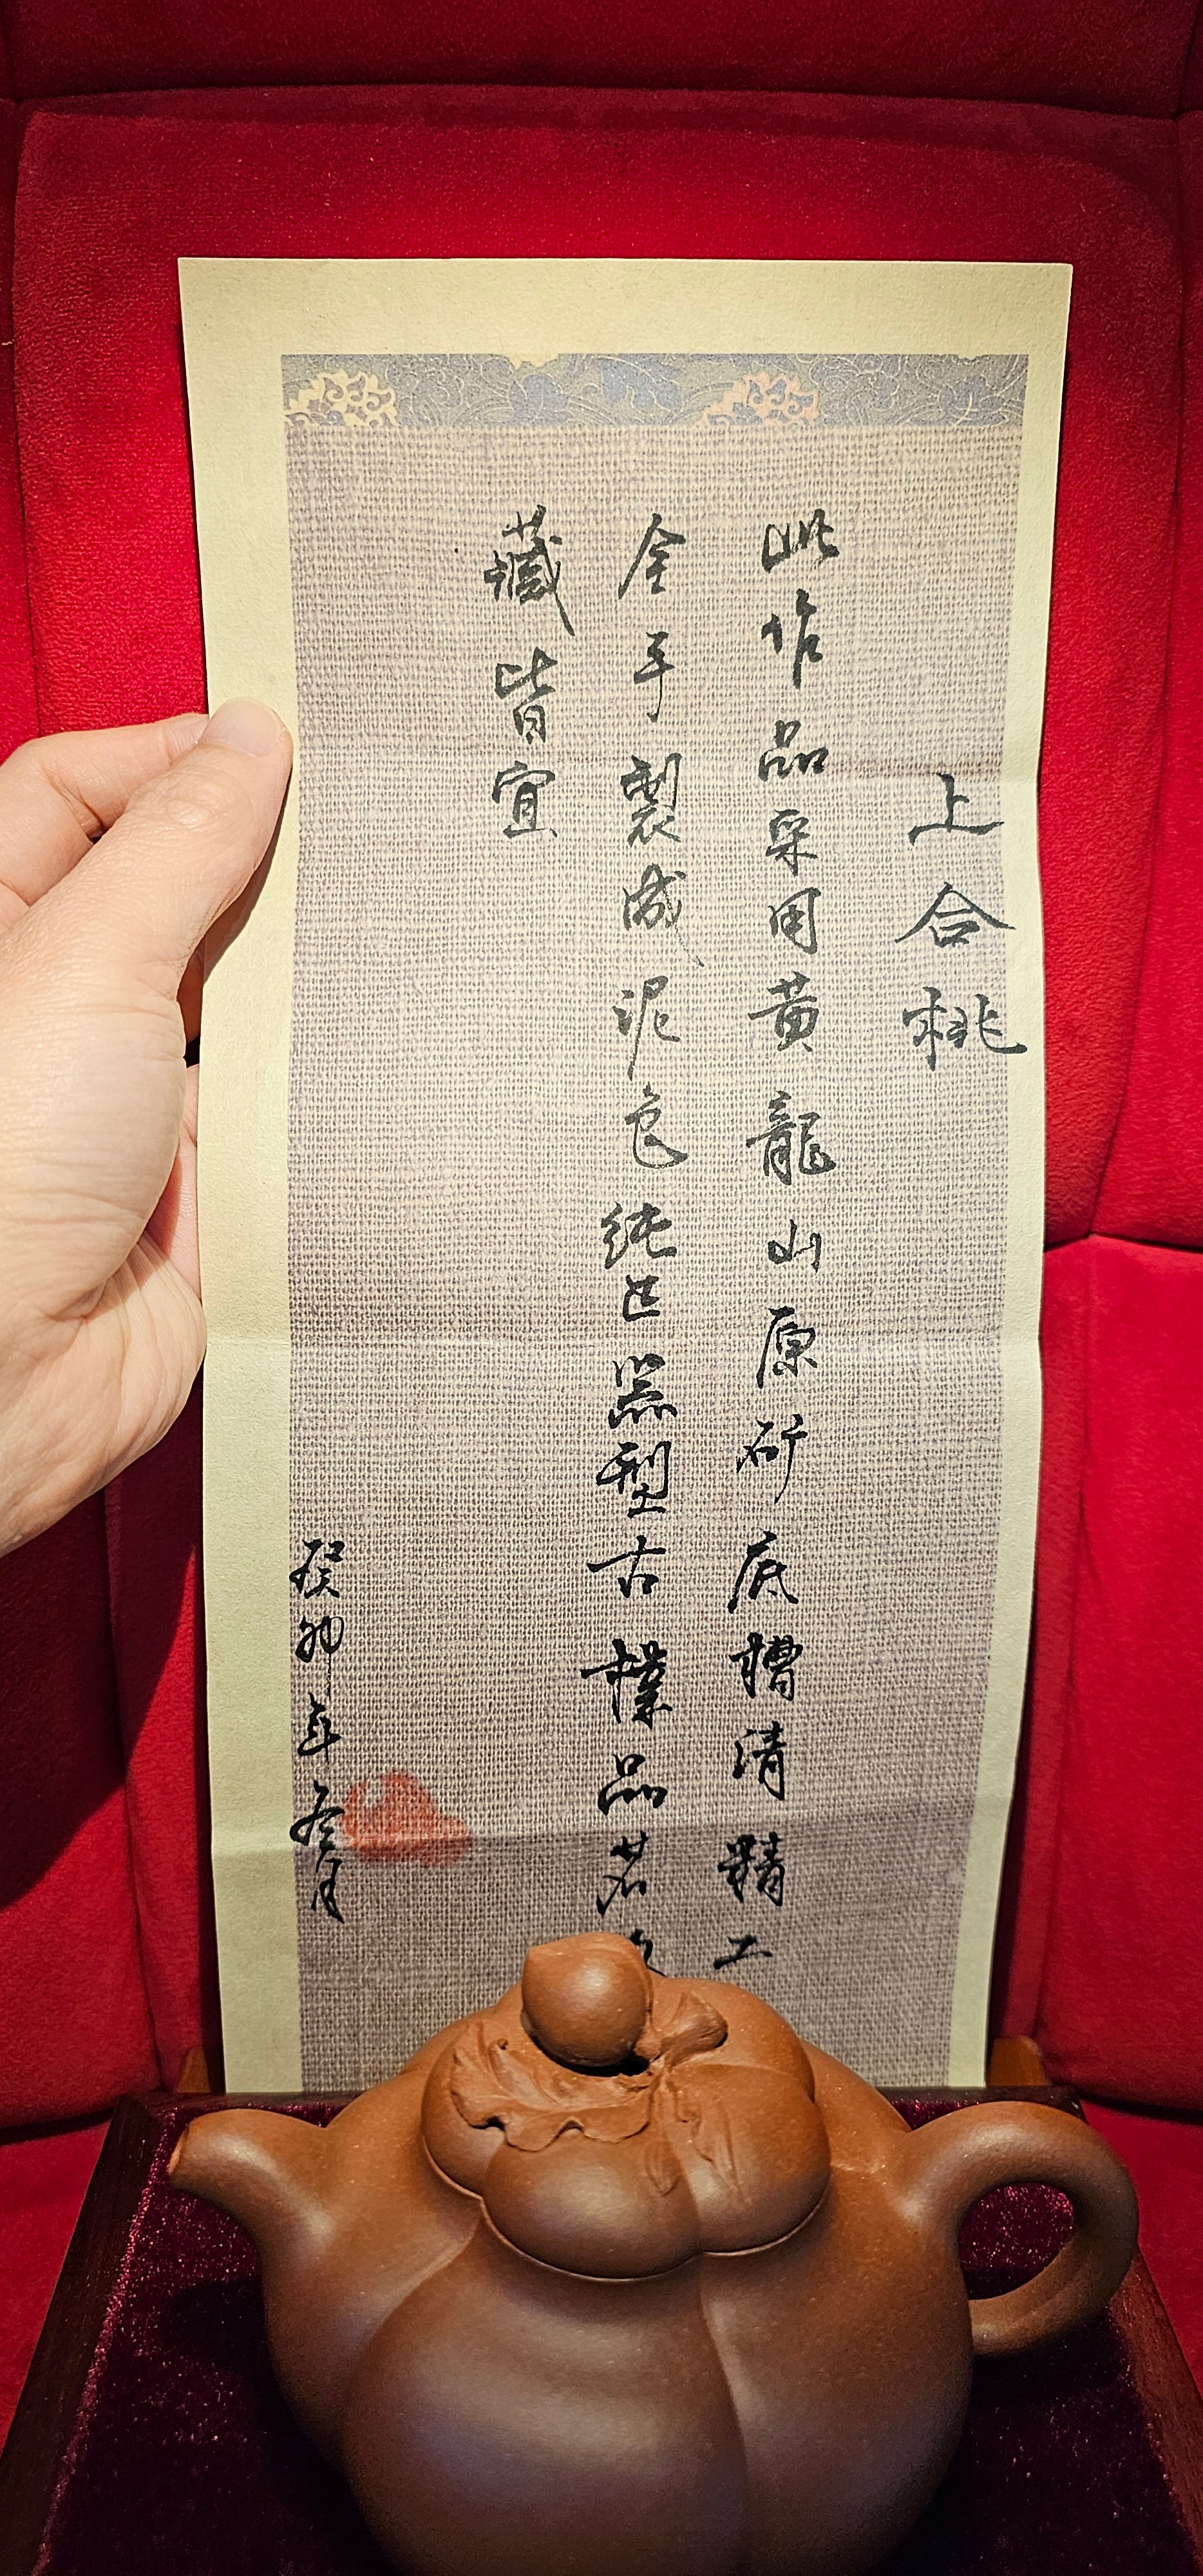 上合桃
此作品采用黄龍山原矿底槽清精工
全手製成泥色纯正器型古樸品茗
藏皆宜
癸卯年冬月